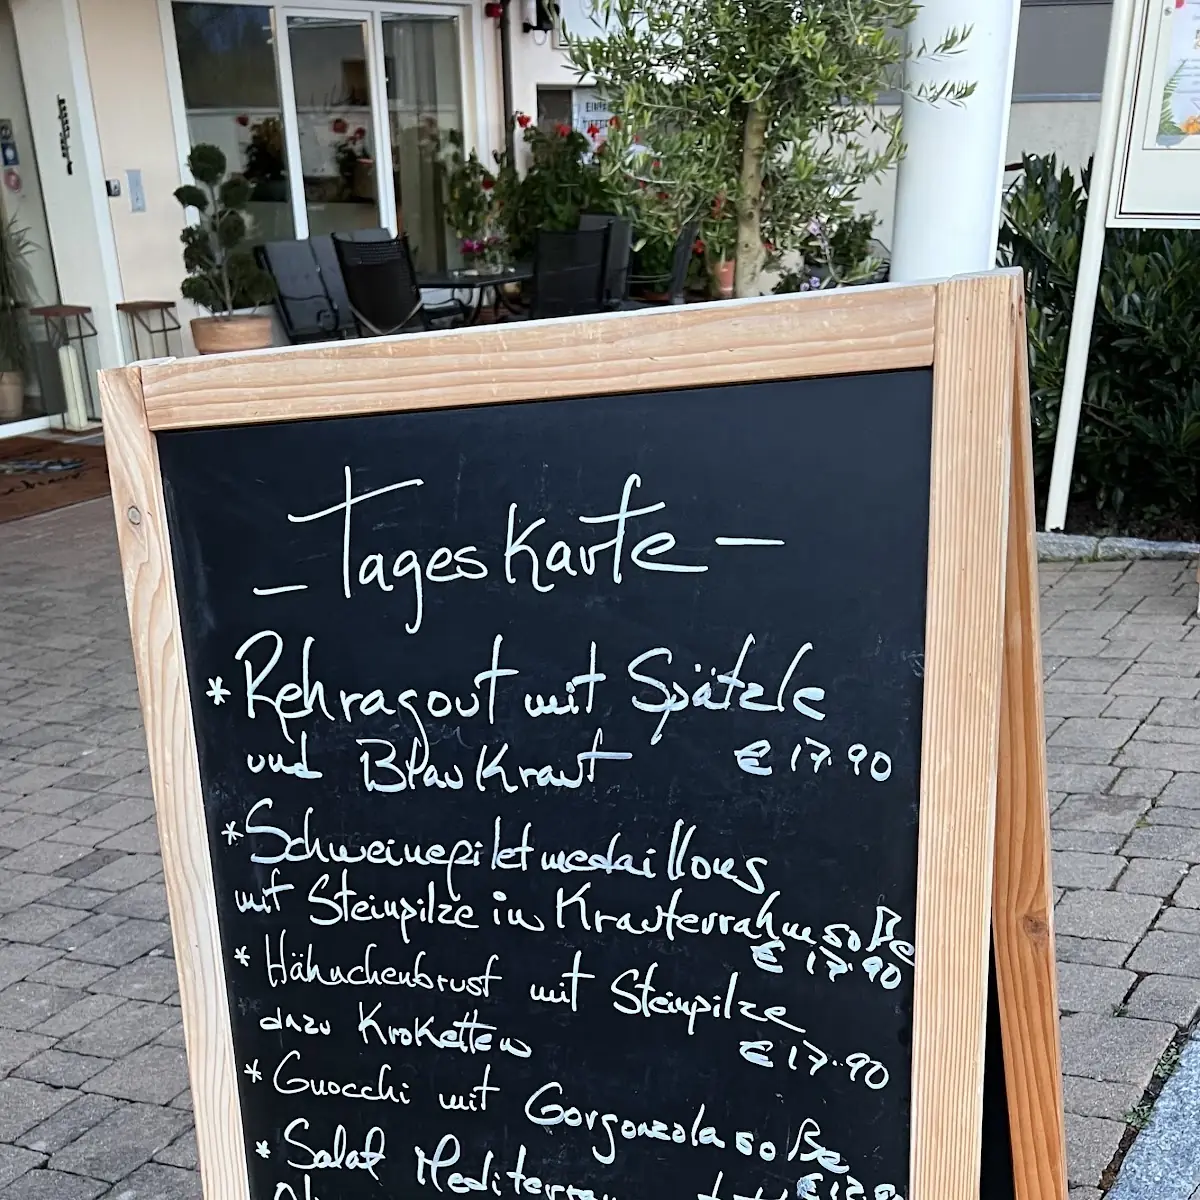 - Tageskarte -
* Rehragout mit Spätzle
und Blaukraut € 17.90
* Schweinefiletmedaillons
mit Steinpilze in Krauterrahmsoße
€ 17.90
* Hähnchenbrust mit Steinpilze
dazu Kroketten € 17.90
* Gnocchi mit Gorgonzolasoße
* Salat